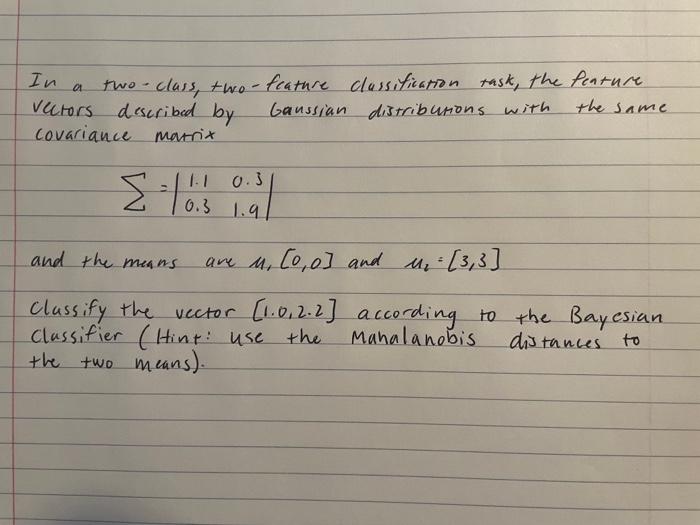 In a two-class, two-feature classification task, the feature
vectors described by Gaussian distributions with the same
covariance matrix
Σ = | 1.1 0.3 |
| 0.3 1.9 |
and the means are μ₁ [0,0] and μ₂ = [3,3]
Classify the vector [1.0, 2.2] according to the Bayesian
Classifier (Hint: use the Mahalanobis distances to
the two means).